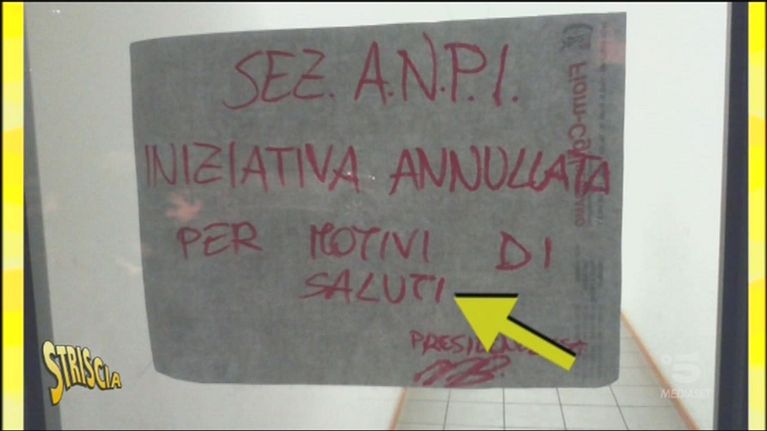 SEZ. A.N.P.I.
INIZIATIVA ANNULLATA
PER MOTIVI DI
SALUTI
STRISCIA
5
MEDIASET